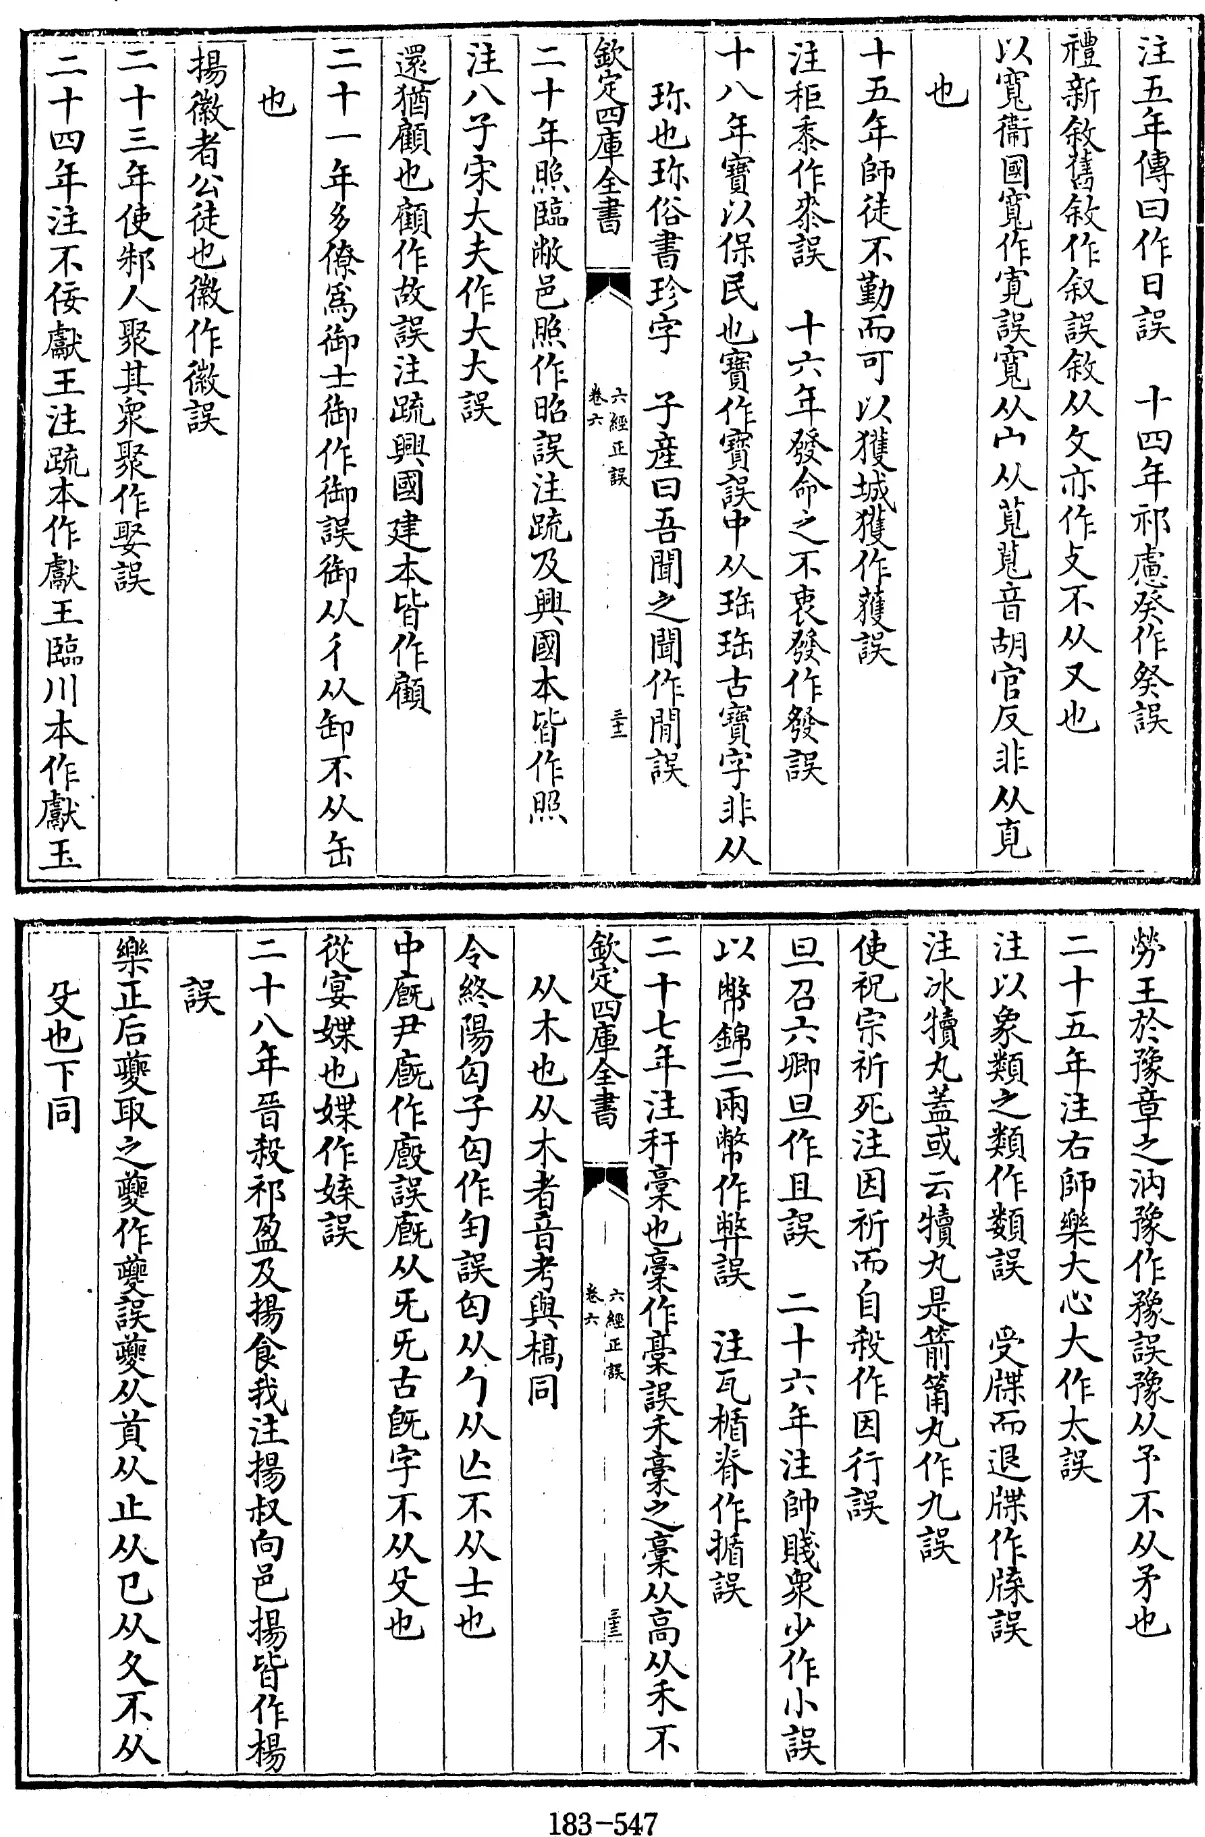 注五年傳曰作日誤　十四年祁慮癸作癹誤
禮新敘舊敘作叙誤敘从攵亦作攴不从又也
以寬衞國寬作寛誤寬从宀从萈萈音胡官反非从𦫳
也
十五年師徒不勤而可以獲城獲作𫉬誤
注秬黍作桼誤　十六年發命之不衷發作𤼲誤
十八年寶以保民也寶作寳誤中从珤珤古寶字非从
珎也珎俗書珍字　子產曰吾聞之聞作閒誤
欽定四庫全書
六經正誤
卷六
三十二
二十年照臨敝邑照作昭誤注疏及興國本皆作照
注八子宋大夫作大大誤
還猶顧也顧作故誤注疏興國建本皆作顧
二十一年多僚爲御士御作御誤御从彳从卸不从缶
也
揚徽者公徒也徽作徽誤
二十三年使邾人聚其衆聚作娶誤
二十四年注不佞獻王注疏本作獻王臨川本作獻玉
勞王於豫章之汭豫作豫誤豫从予不从矛也
二十五年注右師樂大心大作太誤
注以象類之類作類誤　受牒而退牒作牒誤
注冰犢丸蓋或云犢丸是箭筩丸作九誤
使祝宗祈死注因祈而自殺作因行誤
旦召六卿旦作且誤　二十六年注帥賤衆少作小誤
以幣錦二兩幣作弊誤　注瓦楯脊作揗誤
二十七年注秆稾也稾作槀誤禾稾之稾从高从禾不
欽定四庫全書
六經正誤
卷六
三十三
从木也从木者音考與槁同
令終陽匄子匄作匃誤匄从勹从亾不从士也
中廐尹廐作廏誤廐从旡旡古既字不从殳也
從宴媟也媟作媟誤
二十八年晉殺祁盈及揚食我注揚叔向邑揚皆作楊
誤
樂正后夔取之夔作夔誤夔从首从止从巳从夊不从
殳也下同
183-547